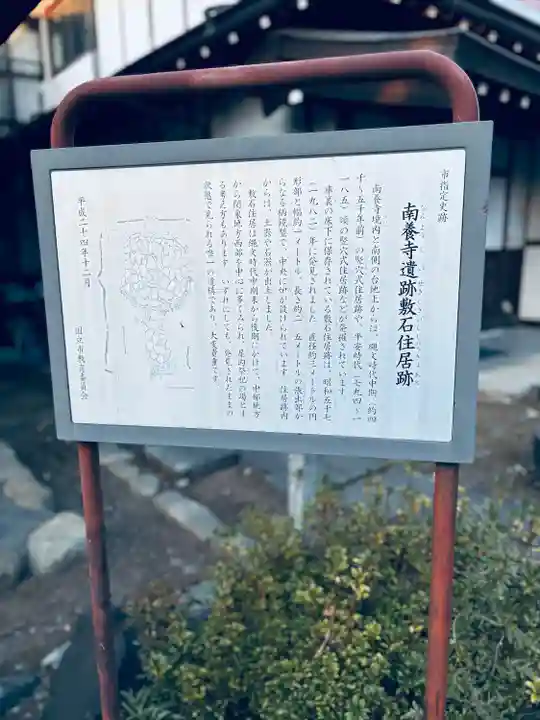 市指定史跡
南養寺遺跡敷石住居跡
南養寺境内と南側の台地上からは、縄文時代中期(約四
千~五千年前)の竪穴式住居跡や、平安時代(七九四~一
一八五)頃の竪穴式住居跡などが発掘されています。
庫裏の床下に保存されている敷石住居跡は、昭和五十七
(一九八二)年に発見されました。直径約三メートルの円
形部と幅約一メートル、長さ約二・五メートルの張出部か
らなる柄鏡型で、中央に炉が設けられています。住居跡内
からは、土器や石器が出土しました。
敷石住居は縄文時代中期末から後期にかけて、中部地方
から関東地方西部を中心に多くみられ、屋内祭祀の場とす
る考え方もあります。いずれにしても、発見されたままの
状態で見られる唯一の遺構であり、大変貴重です。
平成二十四年十二月
国立市教育委員会